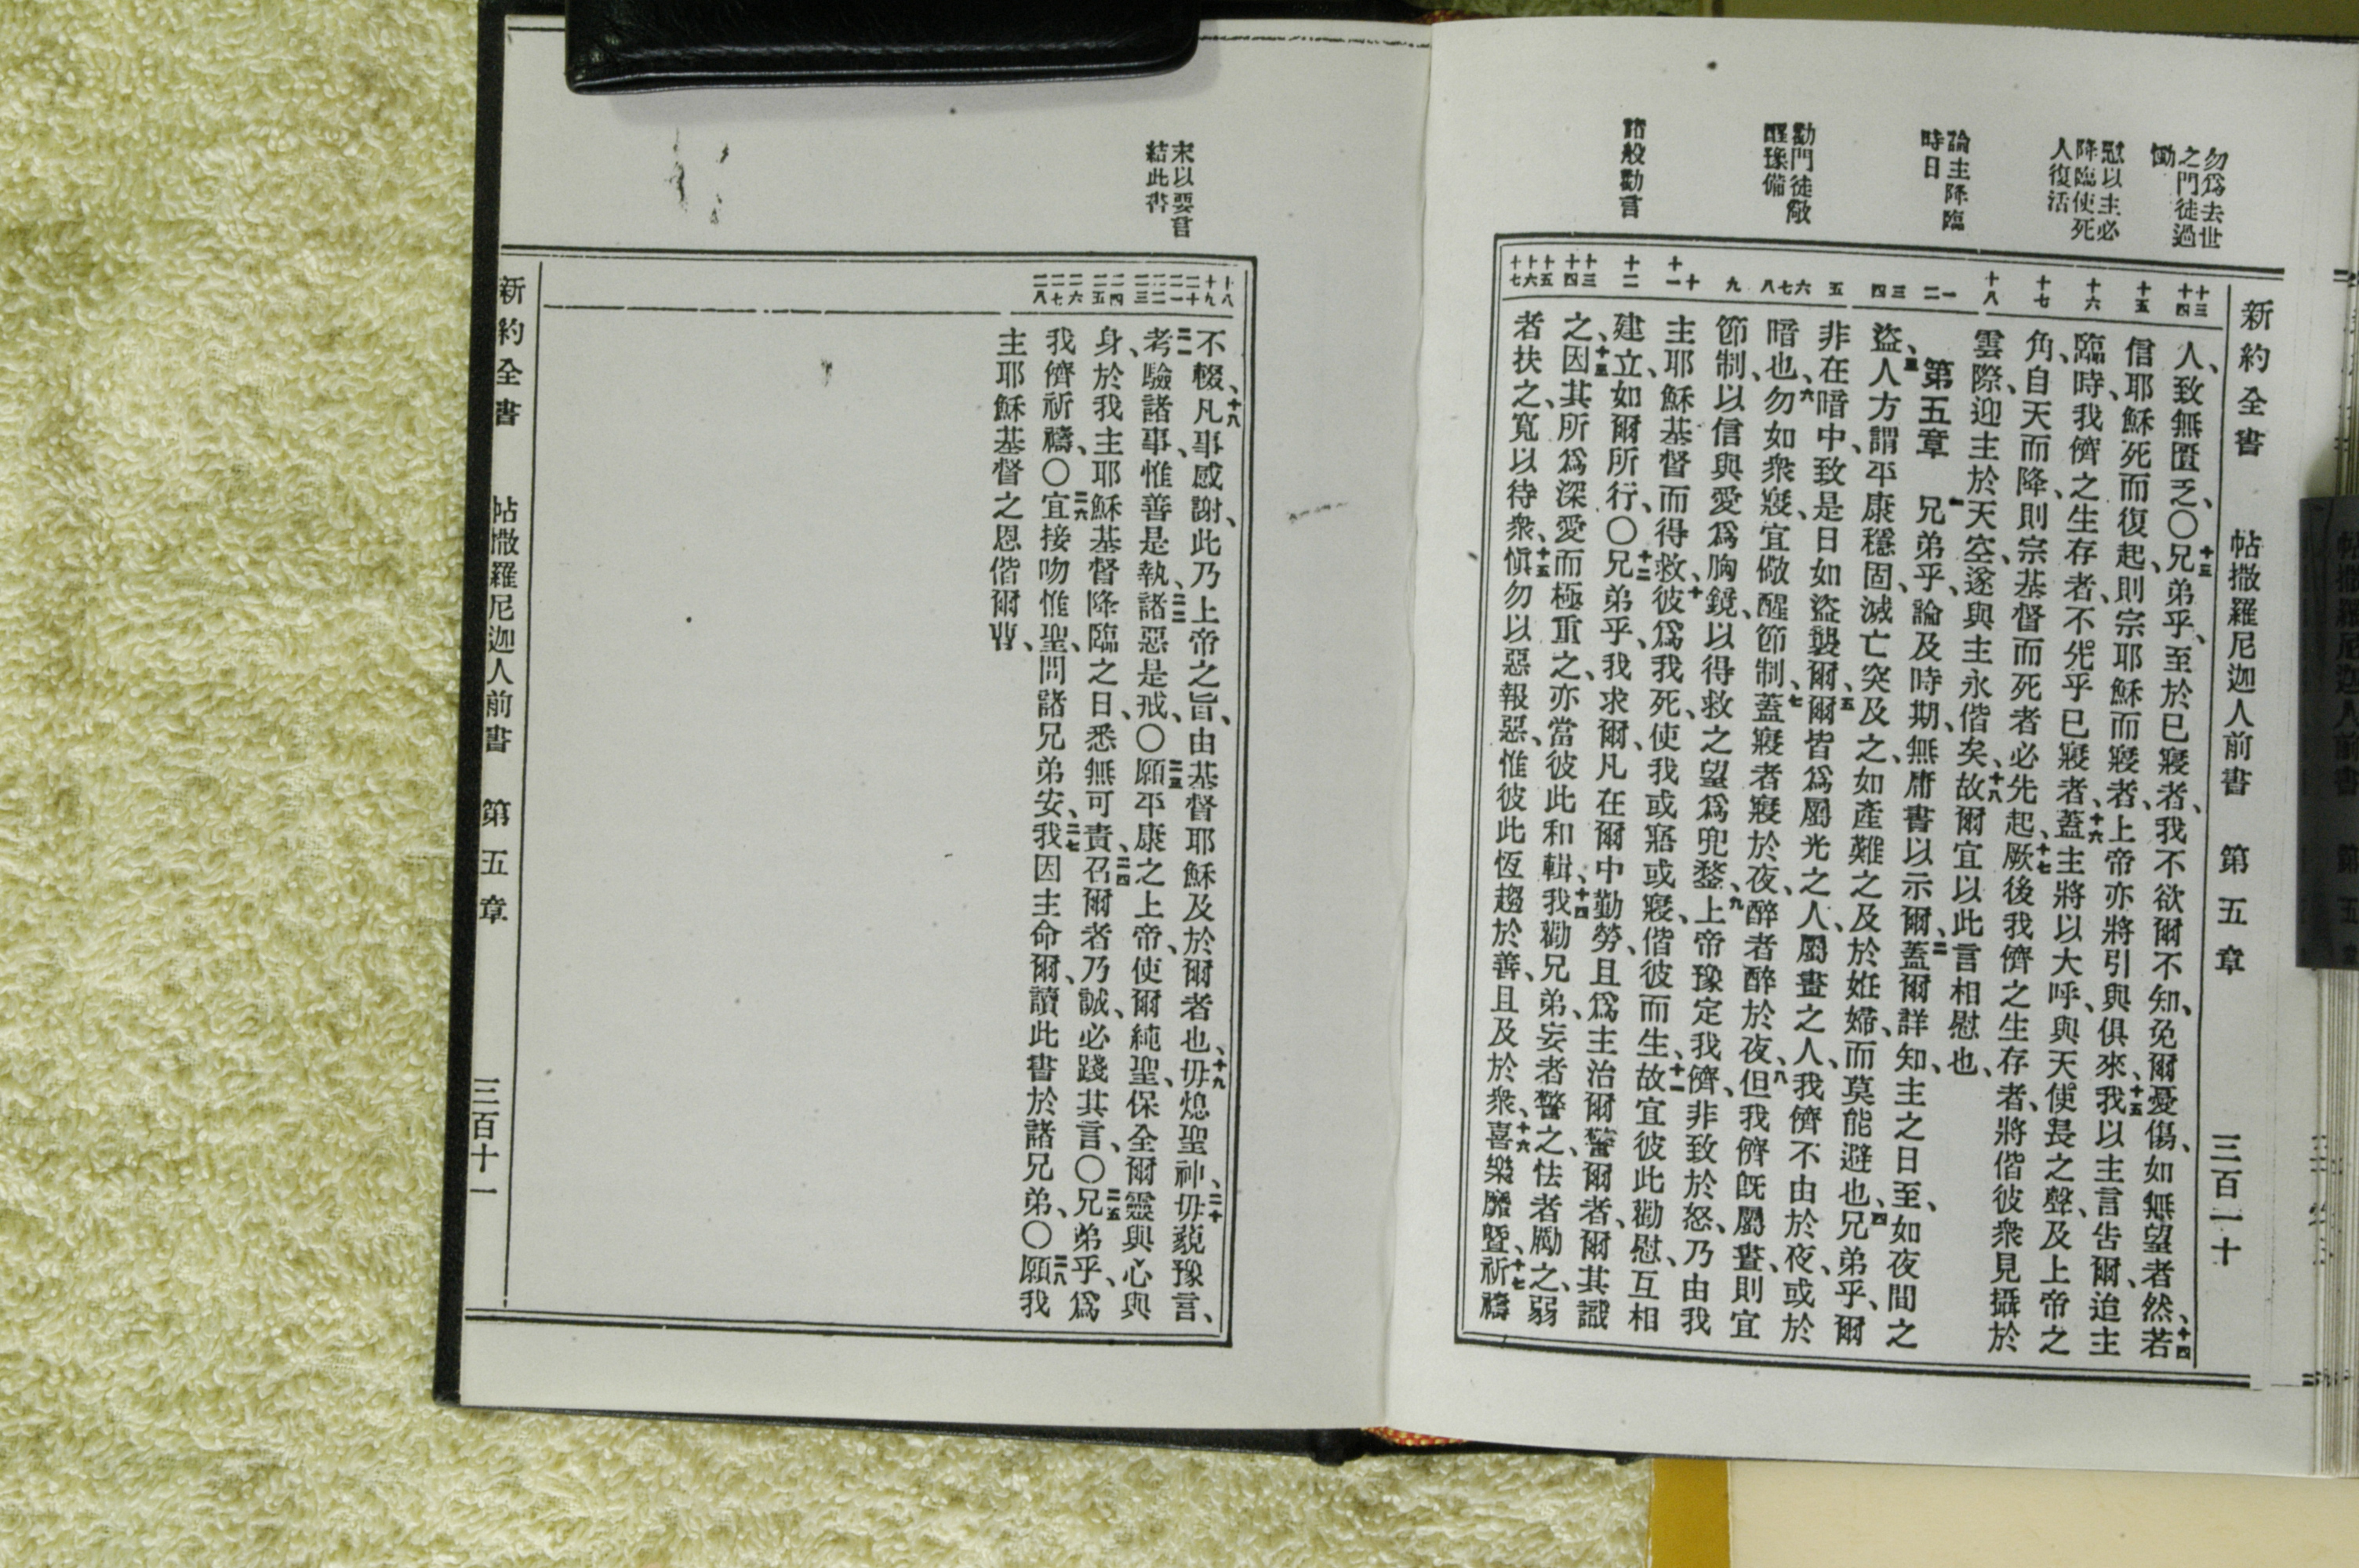 勿爲去世
之門徒過
慟
慰以主必
降臨使死
人復活
論主降臨
時日
勸門徒儆
醒豫備
諸般勸言
新約全書 帖撒羅尼迦人前書 第五章 三百一十
十三
十四
十五
十六
十七
十八
一
二
三
四
五
六
七
八
九
十
十一
十二
十三
十四
十五
十六
十七
人、致無匱乏、〇十三兄弟乎、至於已寢者、我不欲爾不知、免爾憂傷、如無望者然、十四若
信耶穌死而復起、則宗耶穌而寢者、上帝亦將引與俱來、十五我以主言告爾、迨主
臨時、我儕之生存者、不先乎已寢者、十六蓋主將以大呼、與天使長之聲、及上帝之
角、自天而降、則宗基督而死者必先起、十七厥後我儕之生存者、將偕彼衆見攝於
雲際、迎主於天空、遂與主永偕矣、十八故爾宜以此言相慰也、
第五章 一兄弟乎、論及時期、無庸書以示爾、二蓋爾詳知、主之日至、如夜間之
盜、三人方謂平康穩固、滅亡突及之、如產難之及於姙婦、而莫能避也、四兄弟乎、爾
非在暗中、致是日如盜襲爾、五爾皆爲屬光之人、屬晝之人、我儕不由於夜、或於
暗也、六勿如衆寢、宜儆醒節制、七蓋寢者寢於夜、醉者醉於夜、八但我儕旣屬晝、則宜
節制、以信與愛爲胸鏡、以得救之望爲兜鍪、九上帝豫定我儕、非致於怒、乃由我
主耶穌基督而得救、十彼爲我死、使我或寤或寢、偕彼而生、十一故宜彼此勸慰、互相
建立、如爾所行、〇十二兄弟乎、我求爾、凡在爾中勤勞、且爲主治爾警爾者、爾其識
之、十三因其所爲深愛而極重之、亦當彼此和輯、十四我勸兄弟、妄者警之、怯者勵之、弱
者扶之、寬以待衆、十五愼勿以惡報惡、惟彼此恆趨於善、且及於衆、十六喜樂靡曁、十七祈禱
末以要言
結此書
十八
十九
二十
二一
二二
二三
二四
二五
二六
二七
二八
不輟、十八凡事感謝、此乃上帝之旨、由基督耶穌及於爾者也、十九毋熄聖神、二十毋藐豫言、
二一考驗諸事、惟善是執、二二諸惡是戒、〇二三願平康之上帝、使爾純聖、保全爾靈與心與
身、於我主耶穌基督降臨之日、悉無可責、二四召爾者乃誠、必踐其言、〇二五兄弟乎、爲
我儕祈禱、〇二六宜接吻惟聖、問諸兄弟安、二七我因主命爾、讀此書於諸兄弟、〇二八願我
主耶穌基督之恩偕爾曹、
新約全書 帖撒羅尼迦人前書 第五章 三百十一